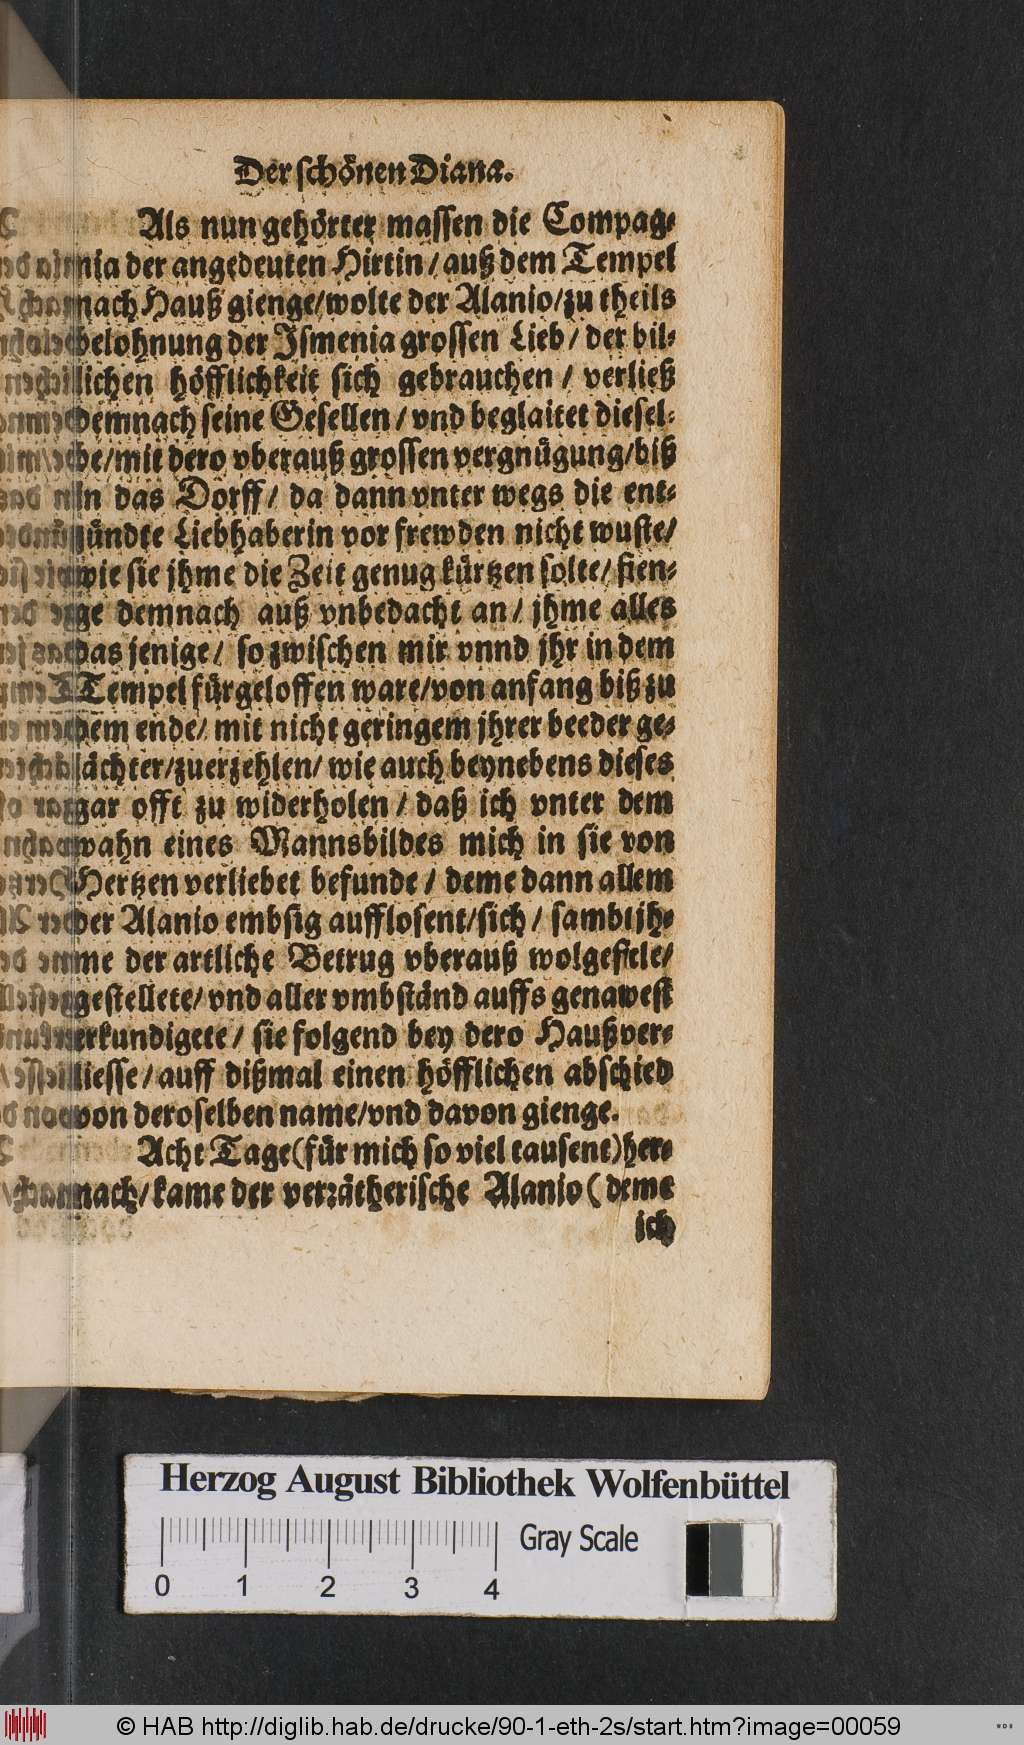 Der schönen Diana.
Als nun gehörter massen die Compag-
nia der angedeuten Hirtin / auß dem Tempel
nach Hauß gienge/wolte der Alanio/zu theils
belohnung der Ismenia grossen Lieb / der bil-
lichen höfflichkeit sich gebrauchen / verließ
demnach seine Gesellen / vnd beglaitet diesel-
be/mit dero vberauß grossen vergnügung/biß
in das Dorff / da dann vnter wegs die ent-
zündte Liebhaberin vor frewden nicht wuste/
wie sie jhme die Zeit genug kürtzen solte/ fien-
ge demnach auß vnbedacht an / jhme alles
das jenige / so zwischen mir vnnd jhr in dem
Tempel fürgeloffen ware/von anfang biß zu
dem ende/ mit nicht geringem jhrer beeder ge-
lächter/zuerzehlen/ wie auch beynebens dieses
gar offt zu widerholen / daß ich vnter dem
wahn eines Mannsbildes mich in sie von
Hertzen verliebet befunde / deme dann allem
der Alanio embsig aufflosent/sich / sambt jh-
me der artliche Betrug vberauß wolgefiele/
gestellete/ vnd aller vmbständ auffs genawest
erkundigete / sie folgend bey dero Haußver-
liesse / auff dißmal einen höfflichen abschied
von deroselben name/vnd davon gienge.
Acht Tage (für mich so viel tausent) her-
nach / kame der verrätherische Alanio ( deme
ich
Herzog August Bibliothek Wolfenbüttel
0 1 2 3 4 Gray Scale
© HAB http://diglib.hab.de/drucke/90-1-eth-2s/start.htm?image=00059